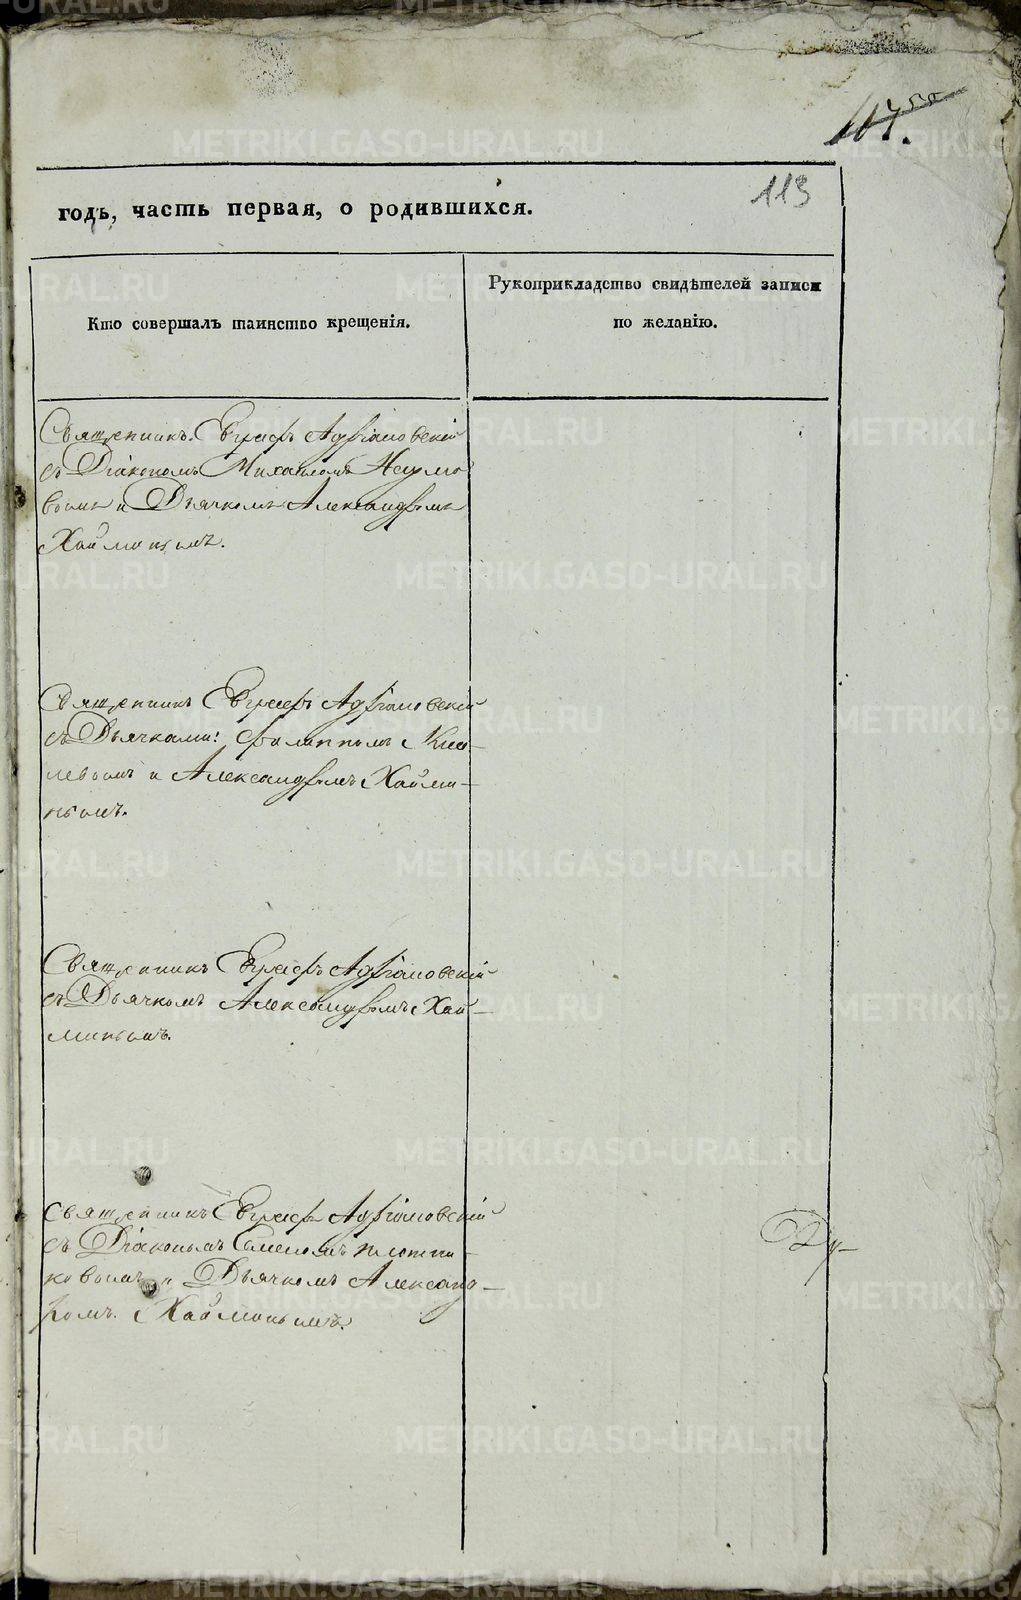 113
годъ, часть первая, о родившихся.
Кто совершалъ таинство крещенія.
Рукоприкладство свидѣтелей записи
по желанію.
Священникъ Евграфъ Адріановскій
съ Діакономъ Михаиломъ Наумо
вымъ и Дьячкомъ Александромъ
Хайминымъ.
Священникъ Евграфъ Адріановскій
съ Дьячками: Филиппомъ
и Александромъ Хайми-
нымъ.
Священникъ Евграфъ Адріановскій
съ Дьячкомъ Александромъ Хай-
минымъ.
Священникъ Евграфъ Адріановскій
съ Діакономъ Плотни-
ковымъ и Дьячкомъ Александ-
ромъ Хайминымъ.
METRIKI.GASO-URAL.RU